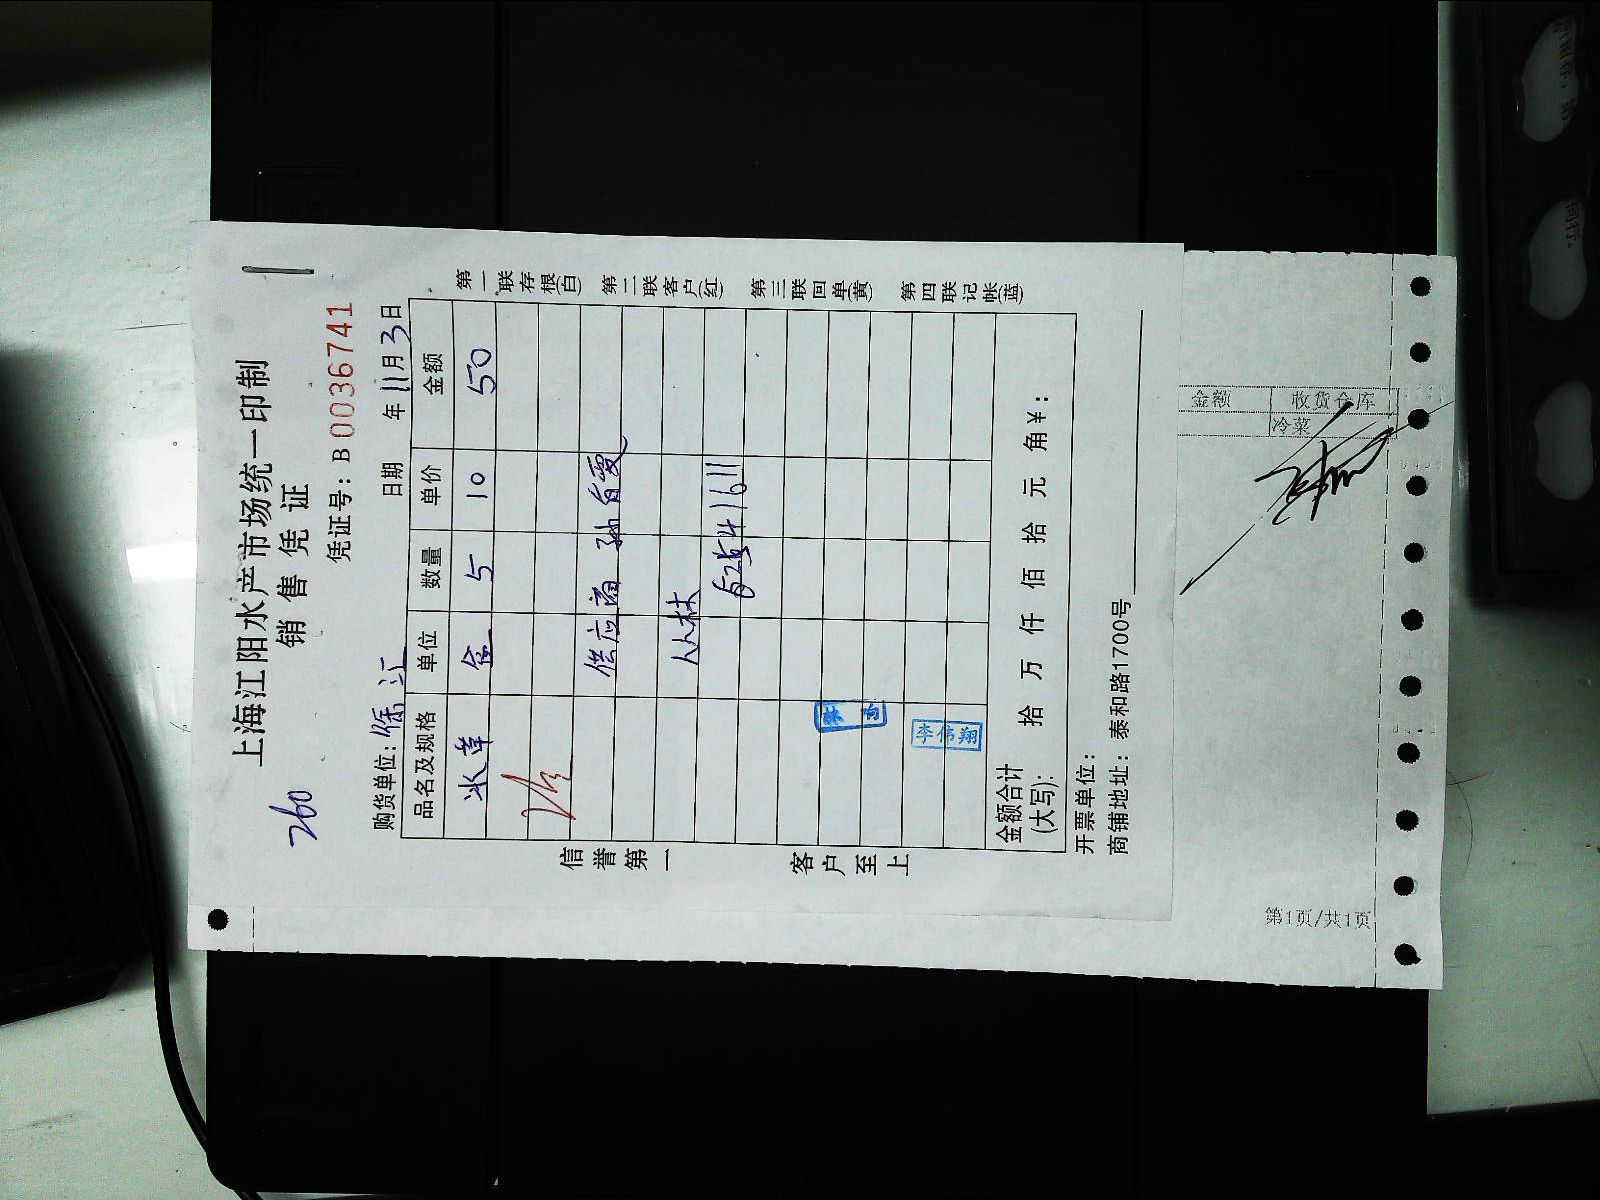 上海江阳水产市场统一印制
销售凭证
260
凭证号：B0036741
购货单位：徐汇
日期 年11月3日
品名及规格 单位 数量 单价 金额
冰草 盒 5 10 50
供应商
从林
62541611
李伟翔
金额合计(大写)： 拾 万 仟 佰 拾 元 角￥：
开票单位：
商铺地址：泰和路1700号
信誉第一
客户至上
第一联存根(白)
第二联客户(红)
第三联回单(黄)
第四联记帐(蓝)
金额 收货仓库
冷菜
第1页/共1页